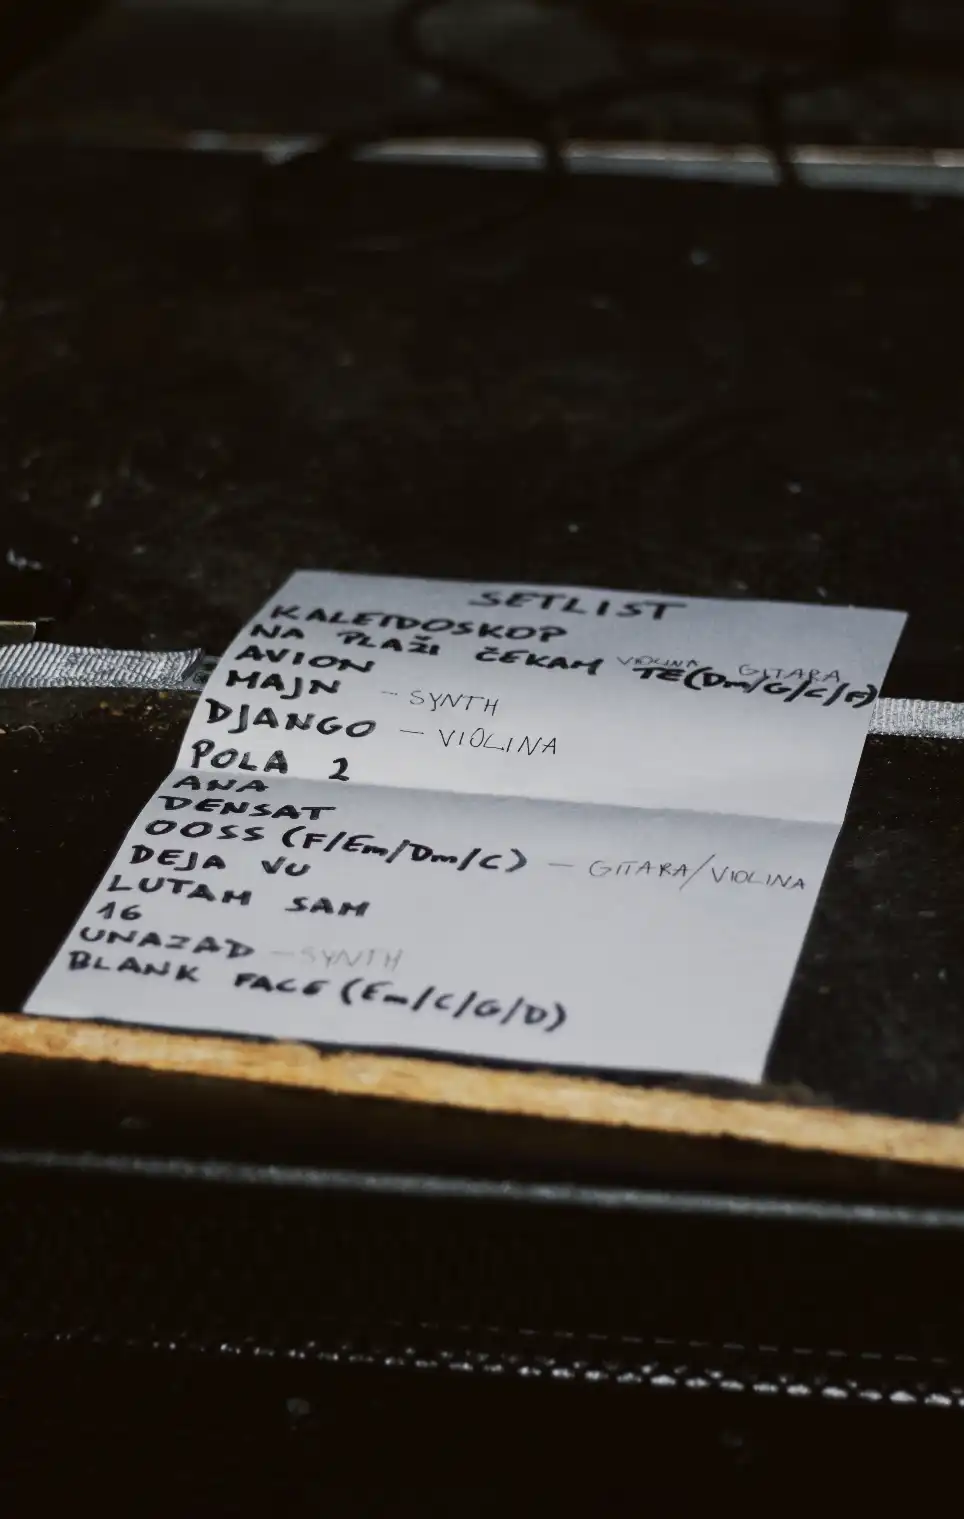 SETLIST
KALEIDOSKOP
NA PLAŽI ČEKAM TE (Dm/G/C/F) VIOLINA GITARA
AVION
MAJN - SYNTH
DJANGO - VIOLINA
POLA 2
ANA
DENSAT
OOSS (F/Em/Dm/C) - GITARA/VIOLINA
DEJA VU
LUTAM SAM
16
UNAZAD - SYNTH
BLANK FACE (Em/C/G/D)